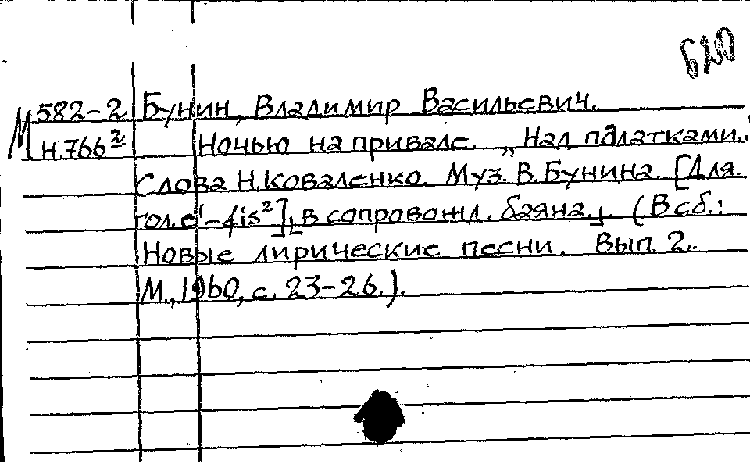 620
М 582-2 Бунин, Владимир Васильевич.
Н.766² Ночью на привале. „Над палатками..."
Слова Н. Коваленко. Муз. В. Бунина. [Для
гол. c¹-fis²], в сопровожд. баяна. (В сб.:
Новые лирические песни. Вып. 2.
М., 1960, с. 23-26.).